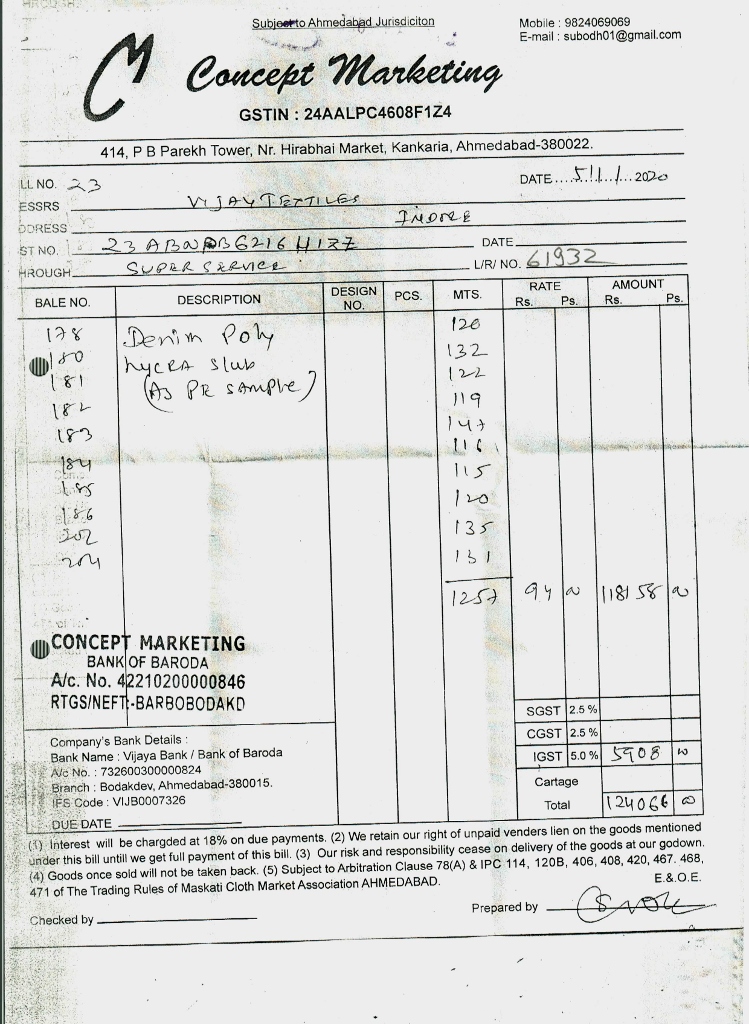 Subject to Ahmedabad Jurisdiciton
Mobile : 9824069069
E-mail : subodh01@gmail.com
CM Concept Marketing
GSTIN : 24AALPC4608F1Z4
414, P B Parekh Tower, Nr. Hirabhai Market, Kankaria, Ahmedabad-380022.
LL NO. 23 DATE....5/11/...2020
ESSRS VIJAY TEXTILES
DDRESS INDORE
ST NO. DATE
HROUGH SUPER SERVICE L/R/ NO. 61932
BALE NO. DESCRIPTION DESIGN NO. PCS. MTS. RATE Rs. Ps. AMOUNT Rs. Ps.
178 Denim Poly 120
180 Lycra Slub 132
181 (As PR SAMPLE) 122
182 119
183 147
184 116
185 115
186 120
202 135
204 131
1257 94 00 118158 00
CONCEPT MARKETING
BANK OF BARODA
A/c. No. 42210200000846
RTGS/NEFT:-BARBOBODAKD
SGST 2.5 %
CGST 2.5 %
IGST 5.0 % 5908 00
Cartage
Total 124066 00
Company's Bank Details :
Bank Name : Vijaya Bank / Bank of Baroda
A/c No. : 732600300000824
Branch : Bodakdev, Ahmedabad-380015.
IFS Code : VIJB0007326
DUE DATE
(1) Interest will be chargded at 18% on due payments. (2) We retain our right of unpaid venders lien on the goods mentioned
under this bill untill we get full payment of this bill. (3) Our risk and responsibility cease on delivery of the goods at our godown.
(4) Goods once sold will not be taken back. (5) Subject to Arbitration Clause 78(A) & IPC 114, 120B, 406, 408, 420, 467. 468,
471 of The Trading Rules of Maskati Cloth Market Association AHMEDABAD.
E.& O.E.
Checked by
Prepared by